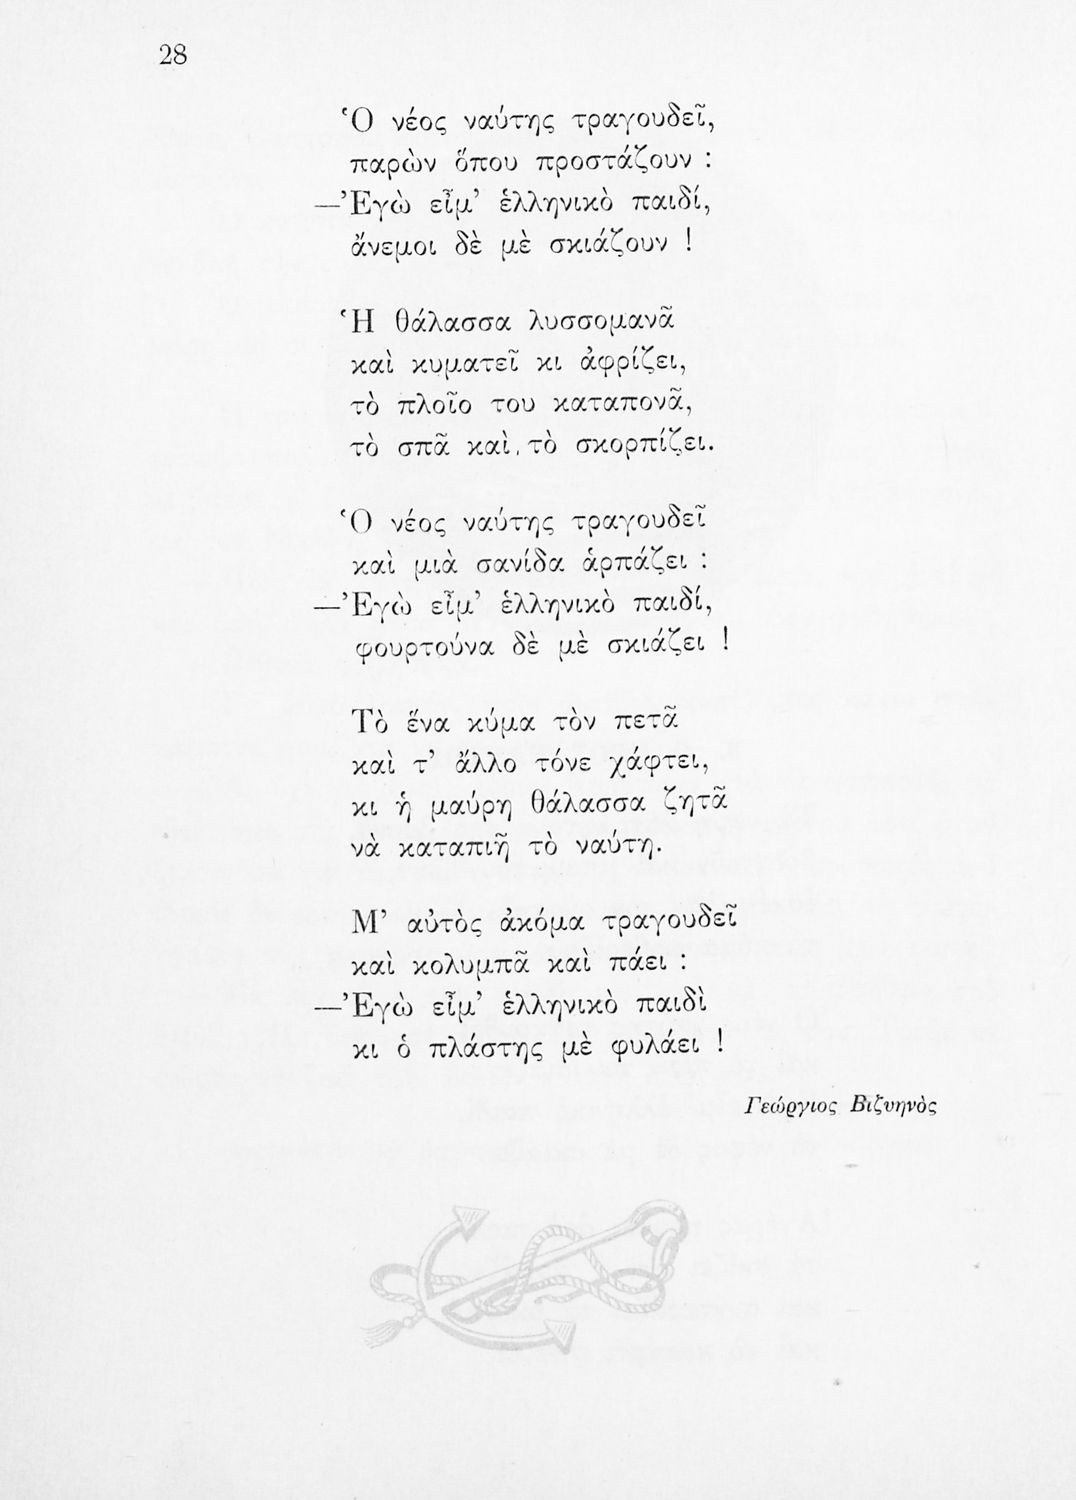 28
Ὁ νέος ναύτης τραγουδεῖ,
παρὼν ὅπου προστάζουν :
—Ἐγὼ εἶμ’ ἑλληνικὸ παιδί,
ἄνεμοι δὲ μὲ σκιάζουν !
Ἡ θάλασσα λυσσομανᾶ
καὶ κυματεῖ κι ἀφρίζει,
τὸ πλοῖο του καταπονᾶ,
τὸ σπᾶ καὶ τὸ σκορπίζει.
Ὁ νέος ναύτης τραγουδεῖ
καὶ μιὰ σανίδα ἁρπάζει :
—Ἐγὼ εἶμ’ ἑλληνικὸ παιδί,
φουρτούνα δὲ μὲ σκιάζει !
Τὸ ἕνα κύμα τὸν πετᾶ
καὶ τ’ ἄλλο τόνε χάφτει,
κι ἡ μαύρη θάλασσα ζητᾶ
νὰ καταπιῇ τὸ ναύτη.
Μ’ αὐτὸς ἀκόμα τραγουδεῖ
καὶ κολυμπᾶ καὶ πάει :
—Ἐγὼ εἶμ’ ἑλληνικὸ παιδὶ
κι ὁ πλάστης μὲ φυλάει !
Γεώργιος Βιζυηνὸς